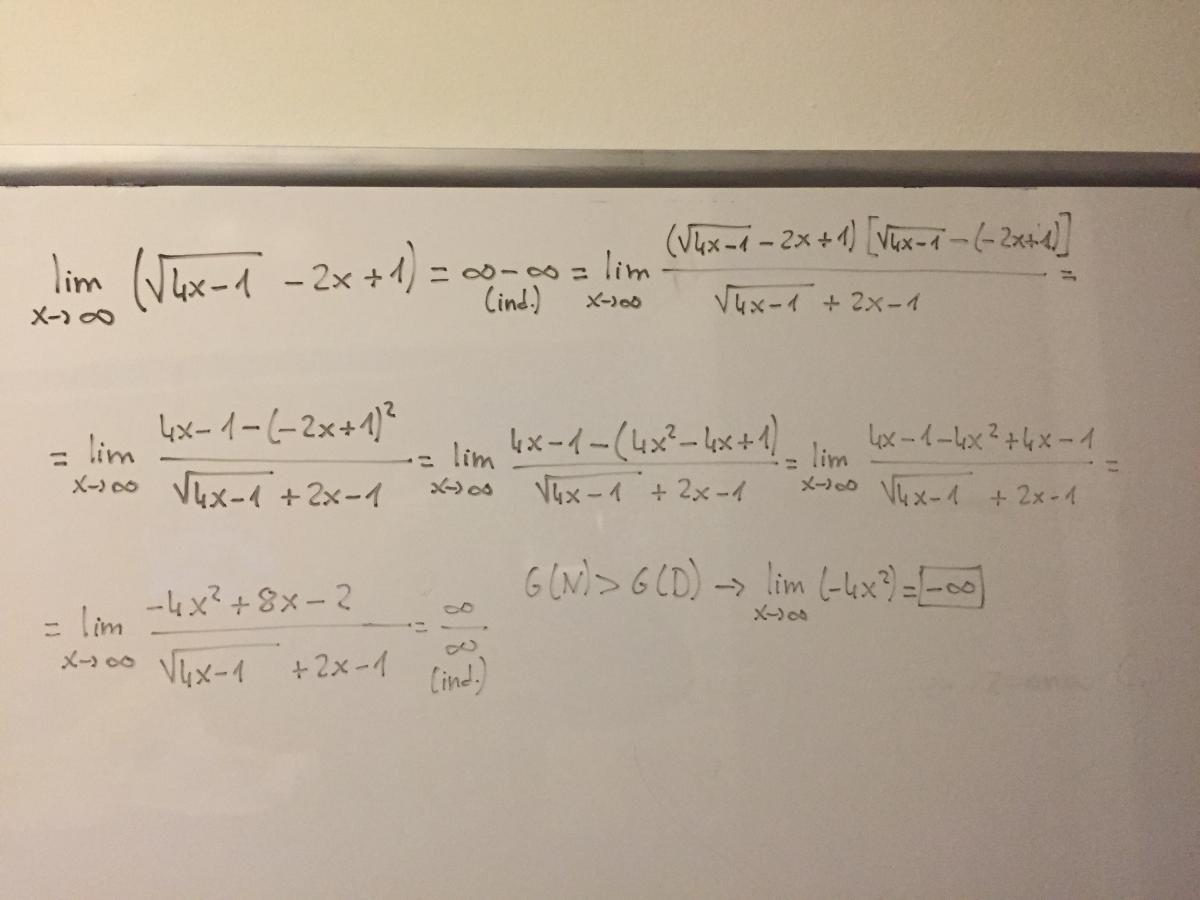 lim x→∞ (√(4x-1) - 2x + 1) = ∞ - ∞ (ind.) = lim x→∞ (√(4x-1) - 2x + 1) [√(4x-1) - (-2x+1)] / (√(4x-1) + 2x - 1) =
= lim x→∞ (4x - 1 - (-2x+1)²) / (√(4x-1) + 2x - 1) = lim x→∞ (4x - 1 - (4x² - 4x + 1)) / (√(4x-1) + 2x - 1) = lim x→∞ (4x - 1 - 4x² + 4x - 1) / (√(4x-1) + 2x - 1) =
= lim x→∞ (-4x² + 8x - 2) / (√(4x-1) + 2x - 1) = ∞/∞ (ind.) G(N) > G(D) → lim x→∞ (-4x²) = -∞